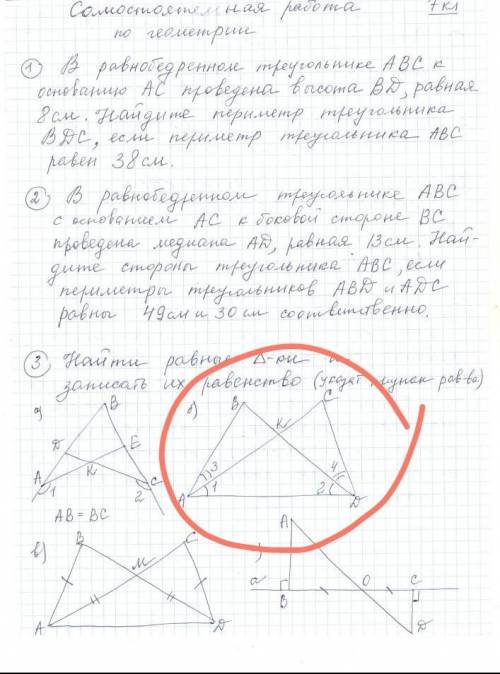 Самостоятельная работа 7кл
по геометрии
① В равнобедренном треугольнике ABC к
основанию AC проведена высота BD, равная
8см. Найдите периметр треугольника
BDC, если периметр треугольника ABC
равен 38см.
② В равнобедренном треугольнике ABC
с основанием AC к боковой стороне BC
проведена медиана AD, равная 13см. Най-
дите стороны треугольника ABC, если
периметры треугольников ABD и ADC
равны 49см и 30см соответственно.
③ Найти равные Δ-ки и
записать их равенство рав-ва)
а) B
D E
A K C
1 2
AB = BC
б) B C
K
3 4
A 1 2 D
в) B C
M
A D
A
a B O C
D